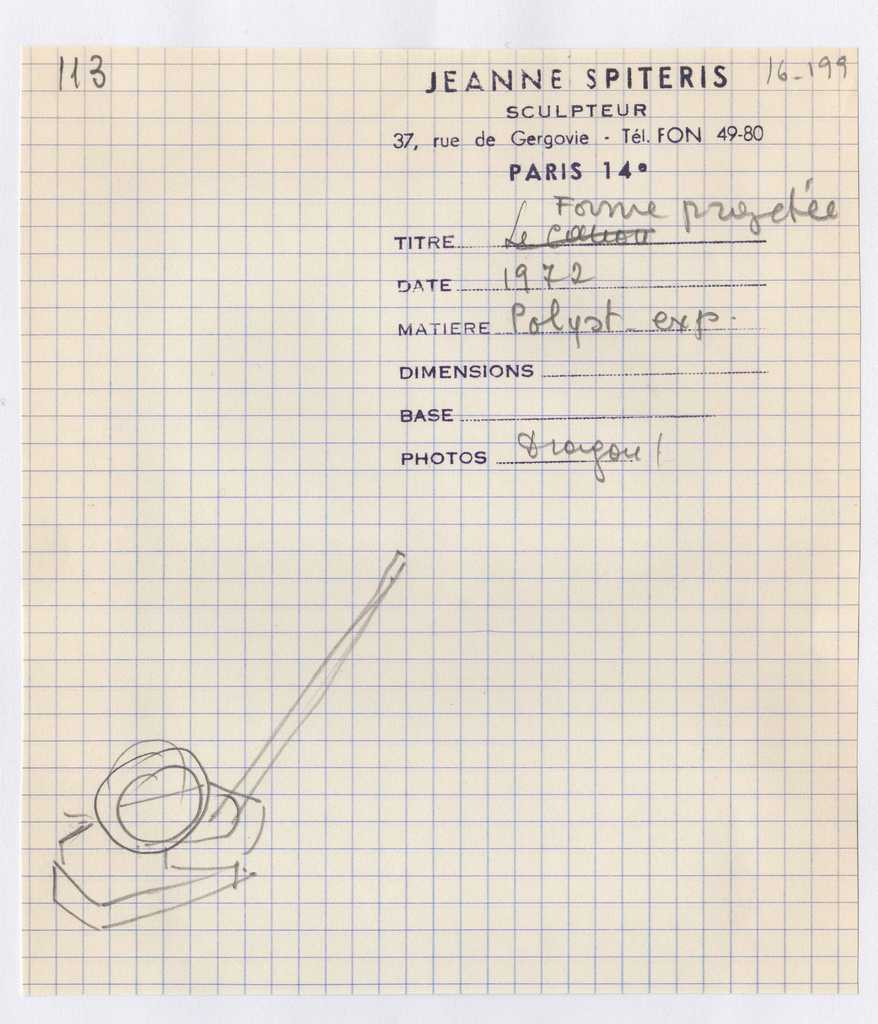 113
JEANNE SPITERIS 16-199
SCULPTEUR
37, rue de Gergovie - Tél. FON 49-80
PARIS 14e
Forme projetée
TITRE Le Canon
DATE 1972
MATIERE Polyst. exp.
DIMENSIONS
BASE
PHOTOS Dragon